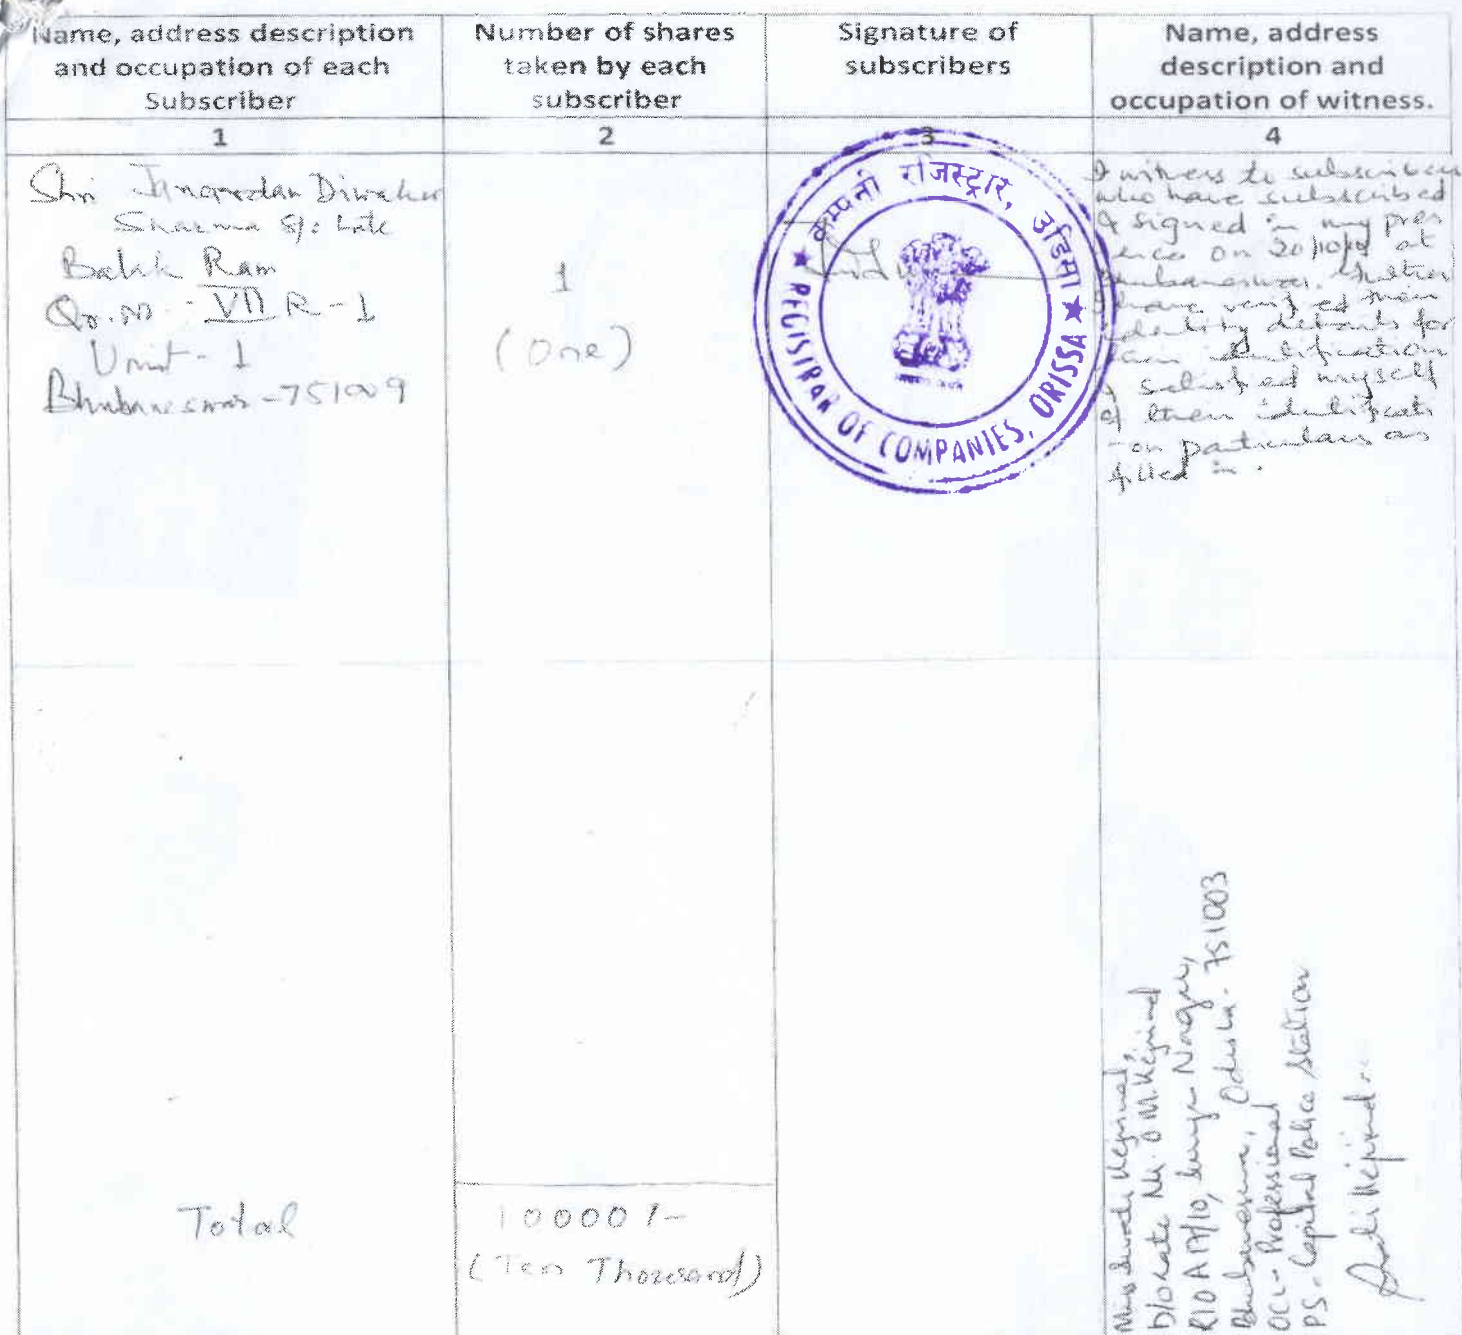 Name, address description
and occupation of each
Subscriber
Number of shares
taken by each
subscriber
Signature of
subscribers
Name, address
description and
occupation of witness.
1
2
3
4
Shri Diwakar
Sharma S/o: Late
Ram
Qr. No - VII R - 1
Unit - 1
Bhubaneswar - 751009
1
(One)
कम्पनी रजिस्ट्रार, उडिसा
★ REGISTRAR OF COMPANIES, ORISSA ★
I witness to subscribers
who have subscribed
& signed in my pres
ence on 20/10/ at
have verified their
identity details for
identification
& satisfied myself
of their identificati
-on particulars as
filled in.
Total
10000/-
(Ten Thousand)
Miss Swati Kejriwal,
D/o Late Mr. O M. Kejriwal
R/O A 17/10, Nagar,
Bhubaneswar, Odisha - 751003
OCC - Professional
PS - Capital Police Station
Swati Kejriwal